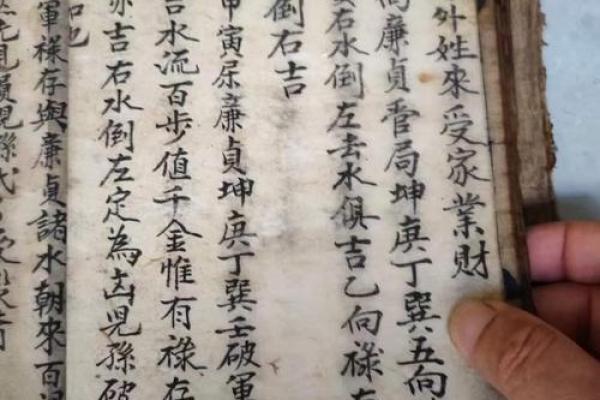 外姓來受家業財
廉貞管局坤庚丁巽五向
右水倒左去水俱吉乙向祿存
倒右吉
甲寅屈廉貞坤庚丁巽壬破軍
吉水流百步值千金惟有祿存
亦吉右水倒左定為凶兒孫破
也
軍祿存與廉貞諸水朝來百
見兒孫代